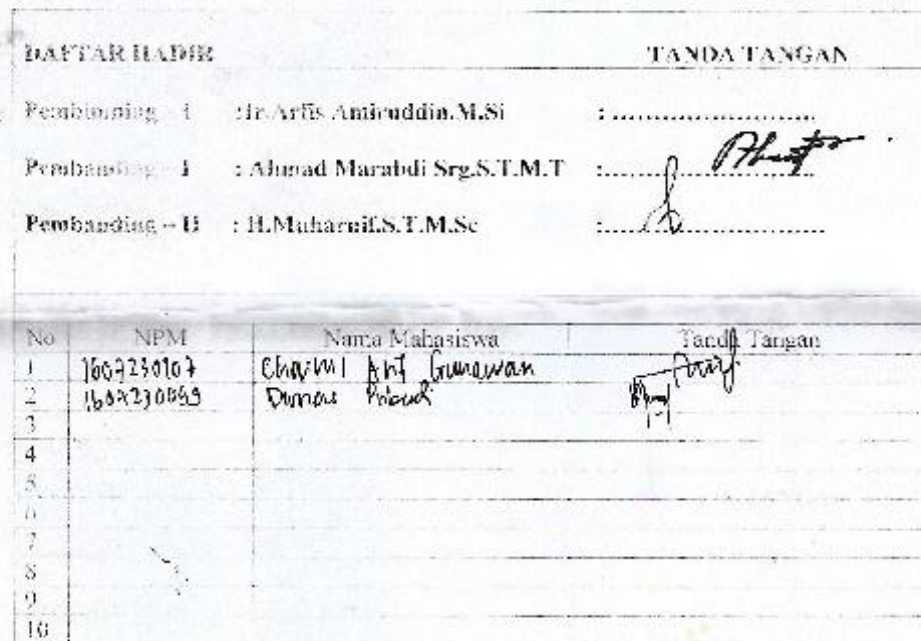 DAFTAR HADIR TANDA TANGAN
Pembimbing – I :Ir.Arfis Amiruddin.M.Si : ........................
Pembanding – I : Ahmad Marabdi Srg.S.T.M.T : ........................
Pembanding – II : H.Muharnif.S.T.M.Sc : ........................
No NPM Nama Mahasiswa Tanda Tangan
1 1607230107 Gunawan
2
3
4
5
6
7
8
9
10